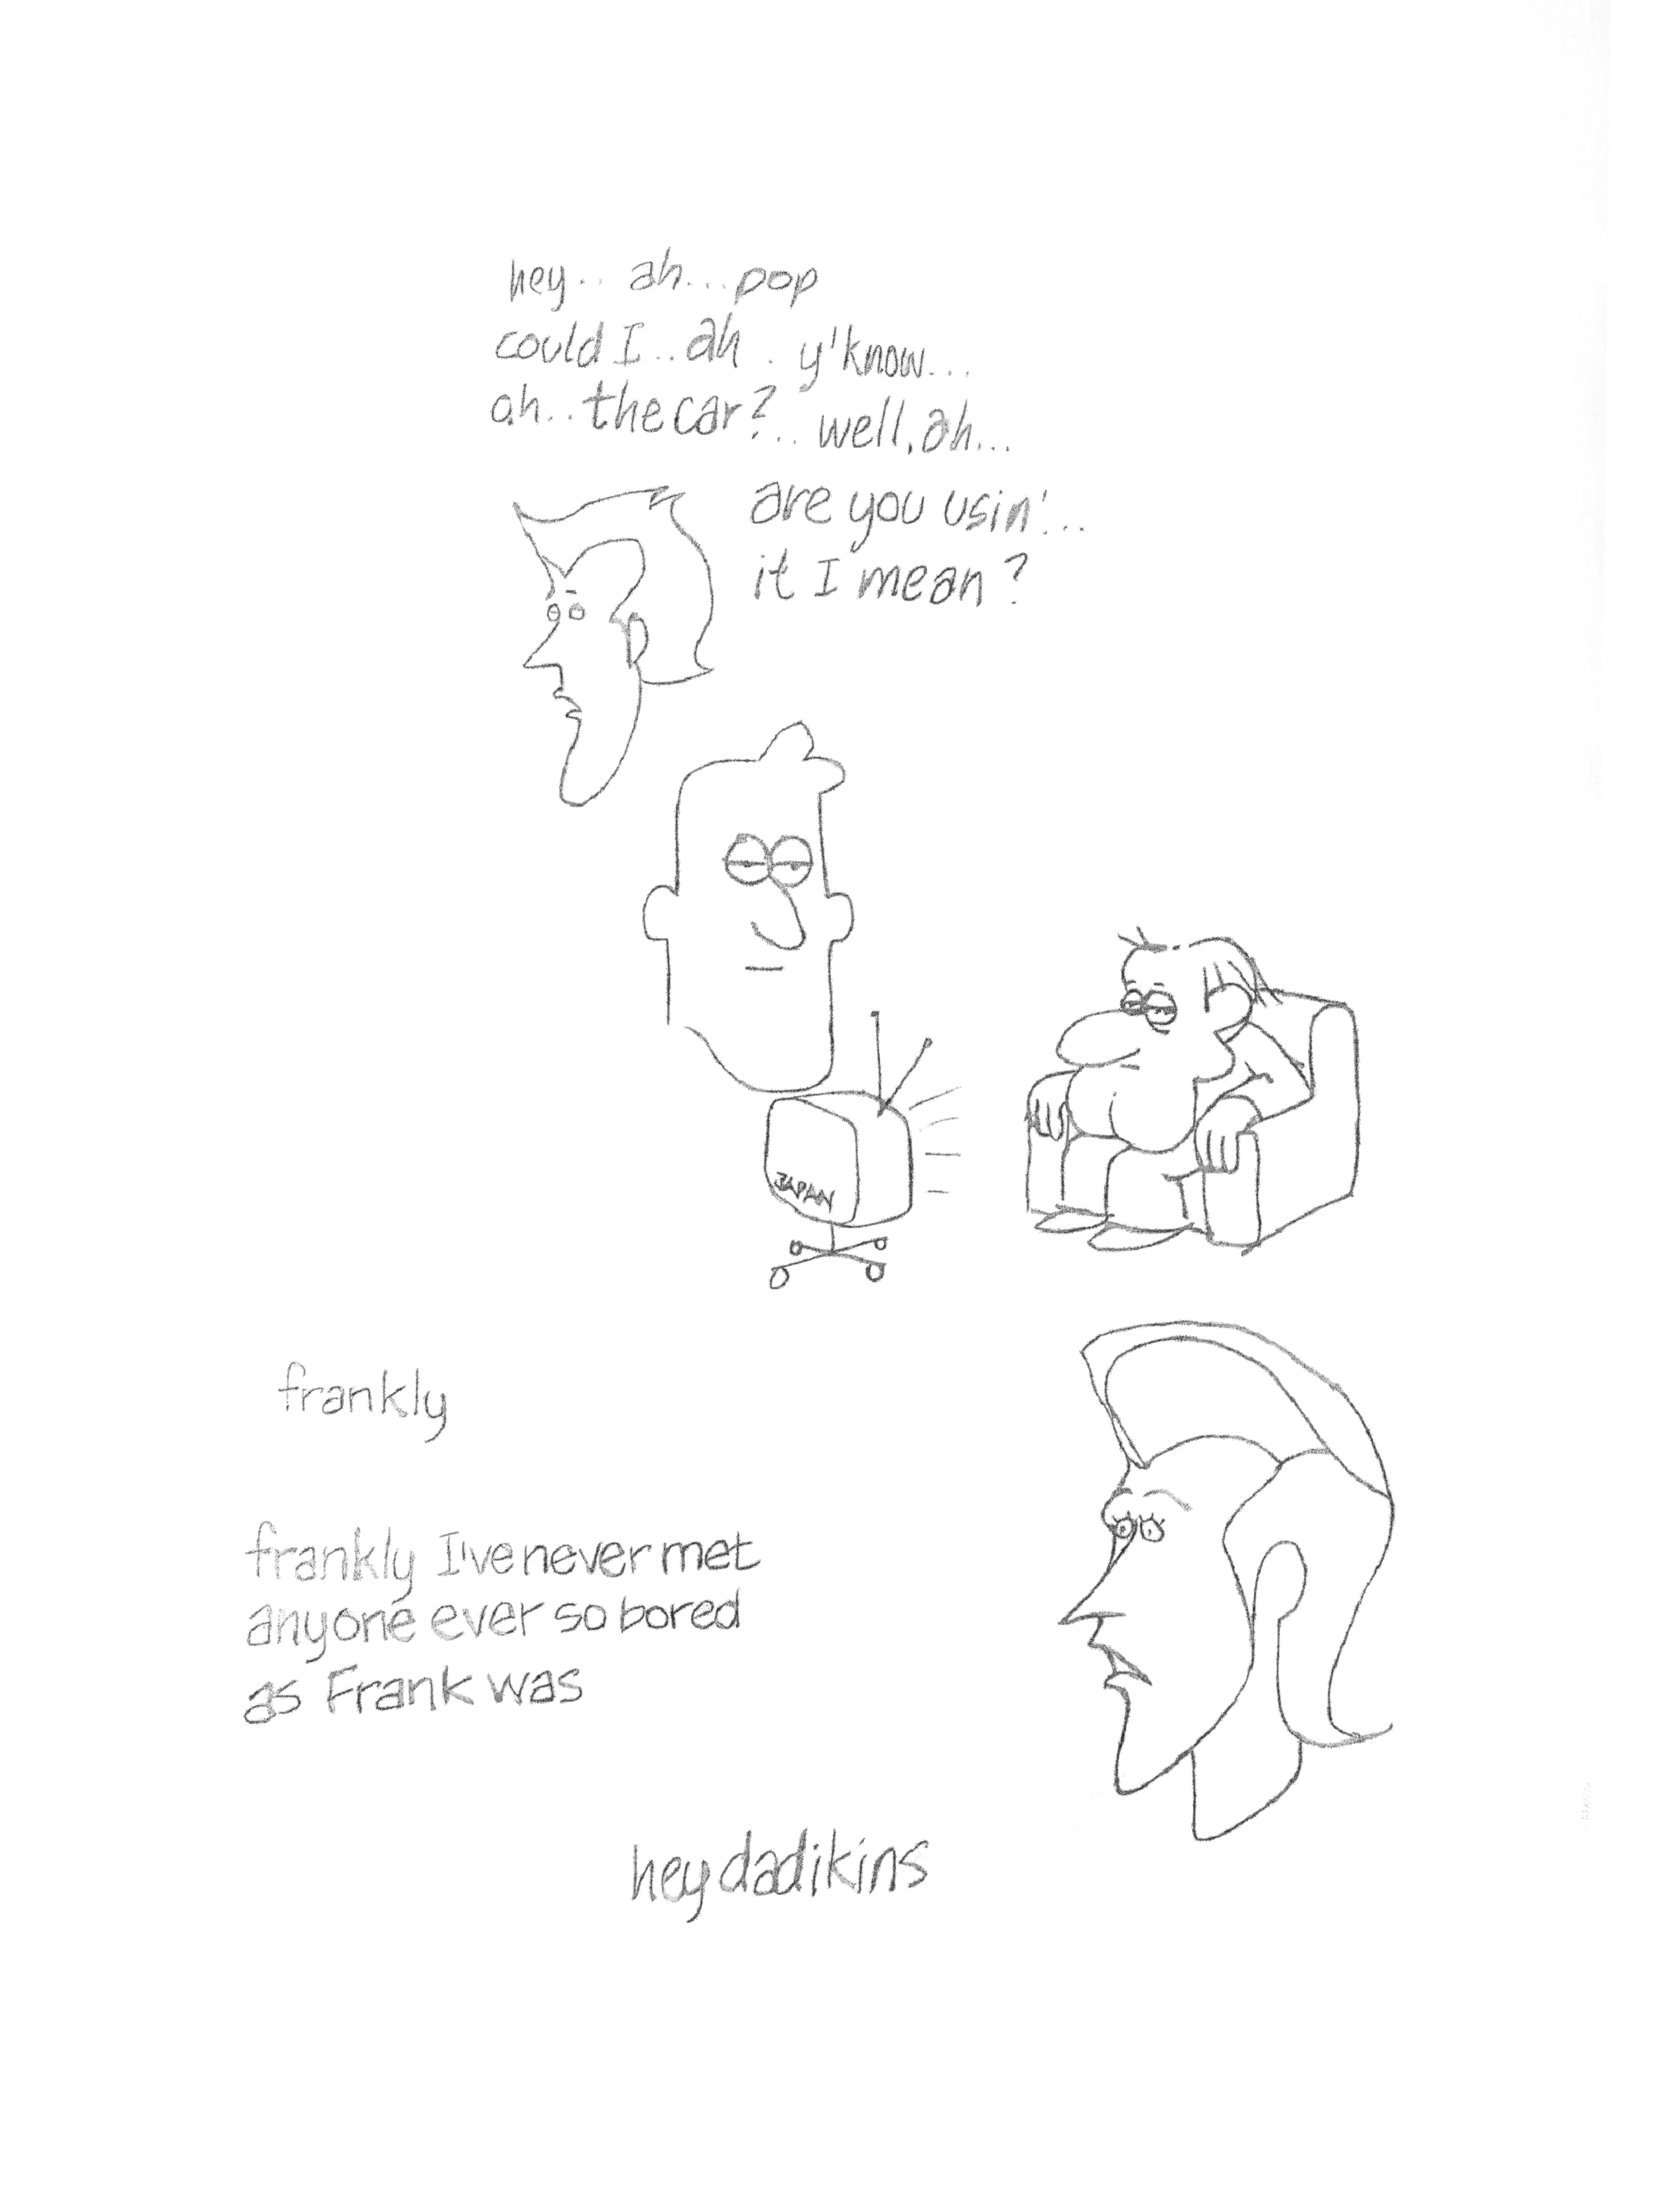 hey.. ah...pop
could I..ah . y'know...
ah..the car?.. well, ah...
are you usin'...
it I mean?
JAPAN
frankly
frankly I've never met
anyone ever so bored
as Frank was
hey dadikins